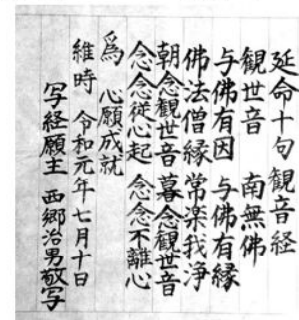 延命十句観音経
観世音　南無佛
与佛有因　与佛有縁
佛法僧縁　常楽我浄
朝念観世音　暮念観世音
念念従心起　念念不離心
為　心願成就
維時　令和元年七月十日
写経願主　西郷治男敬写